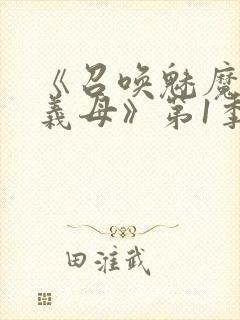 《召唤魅魔
義母》第1季
田淮武